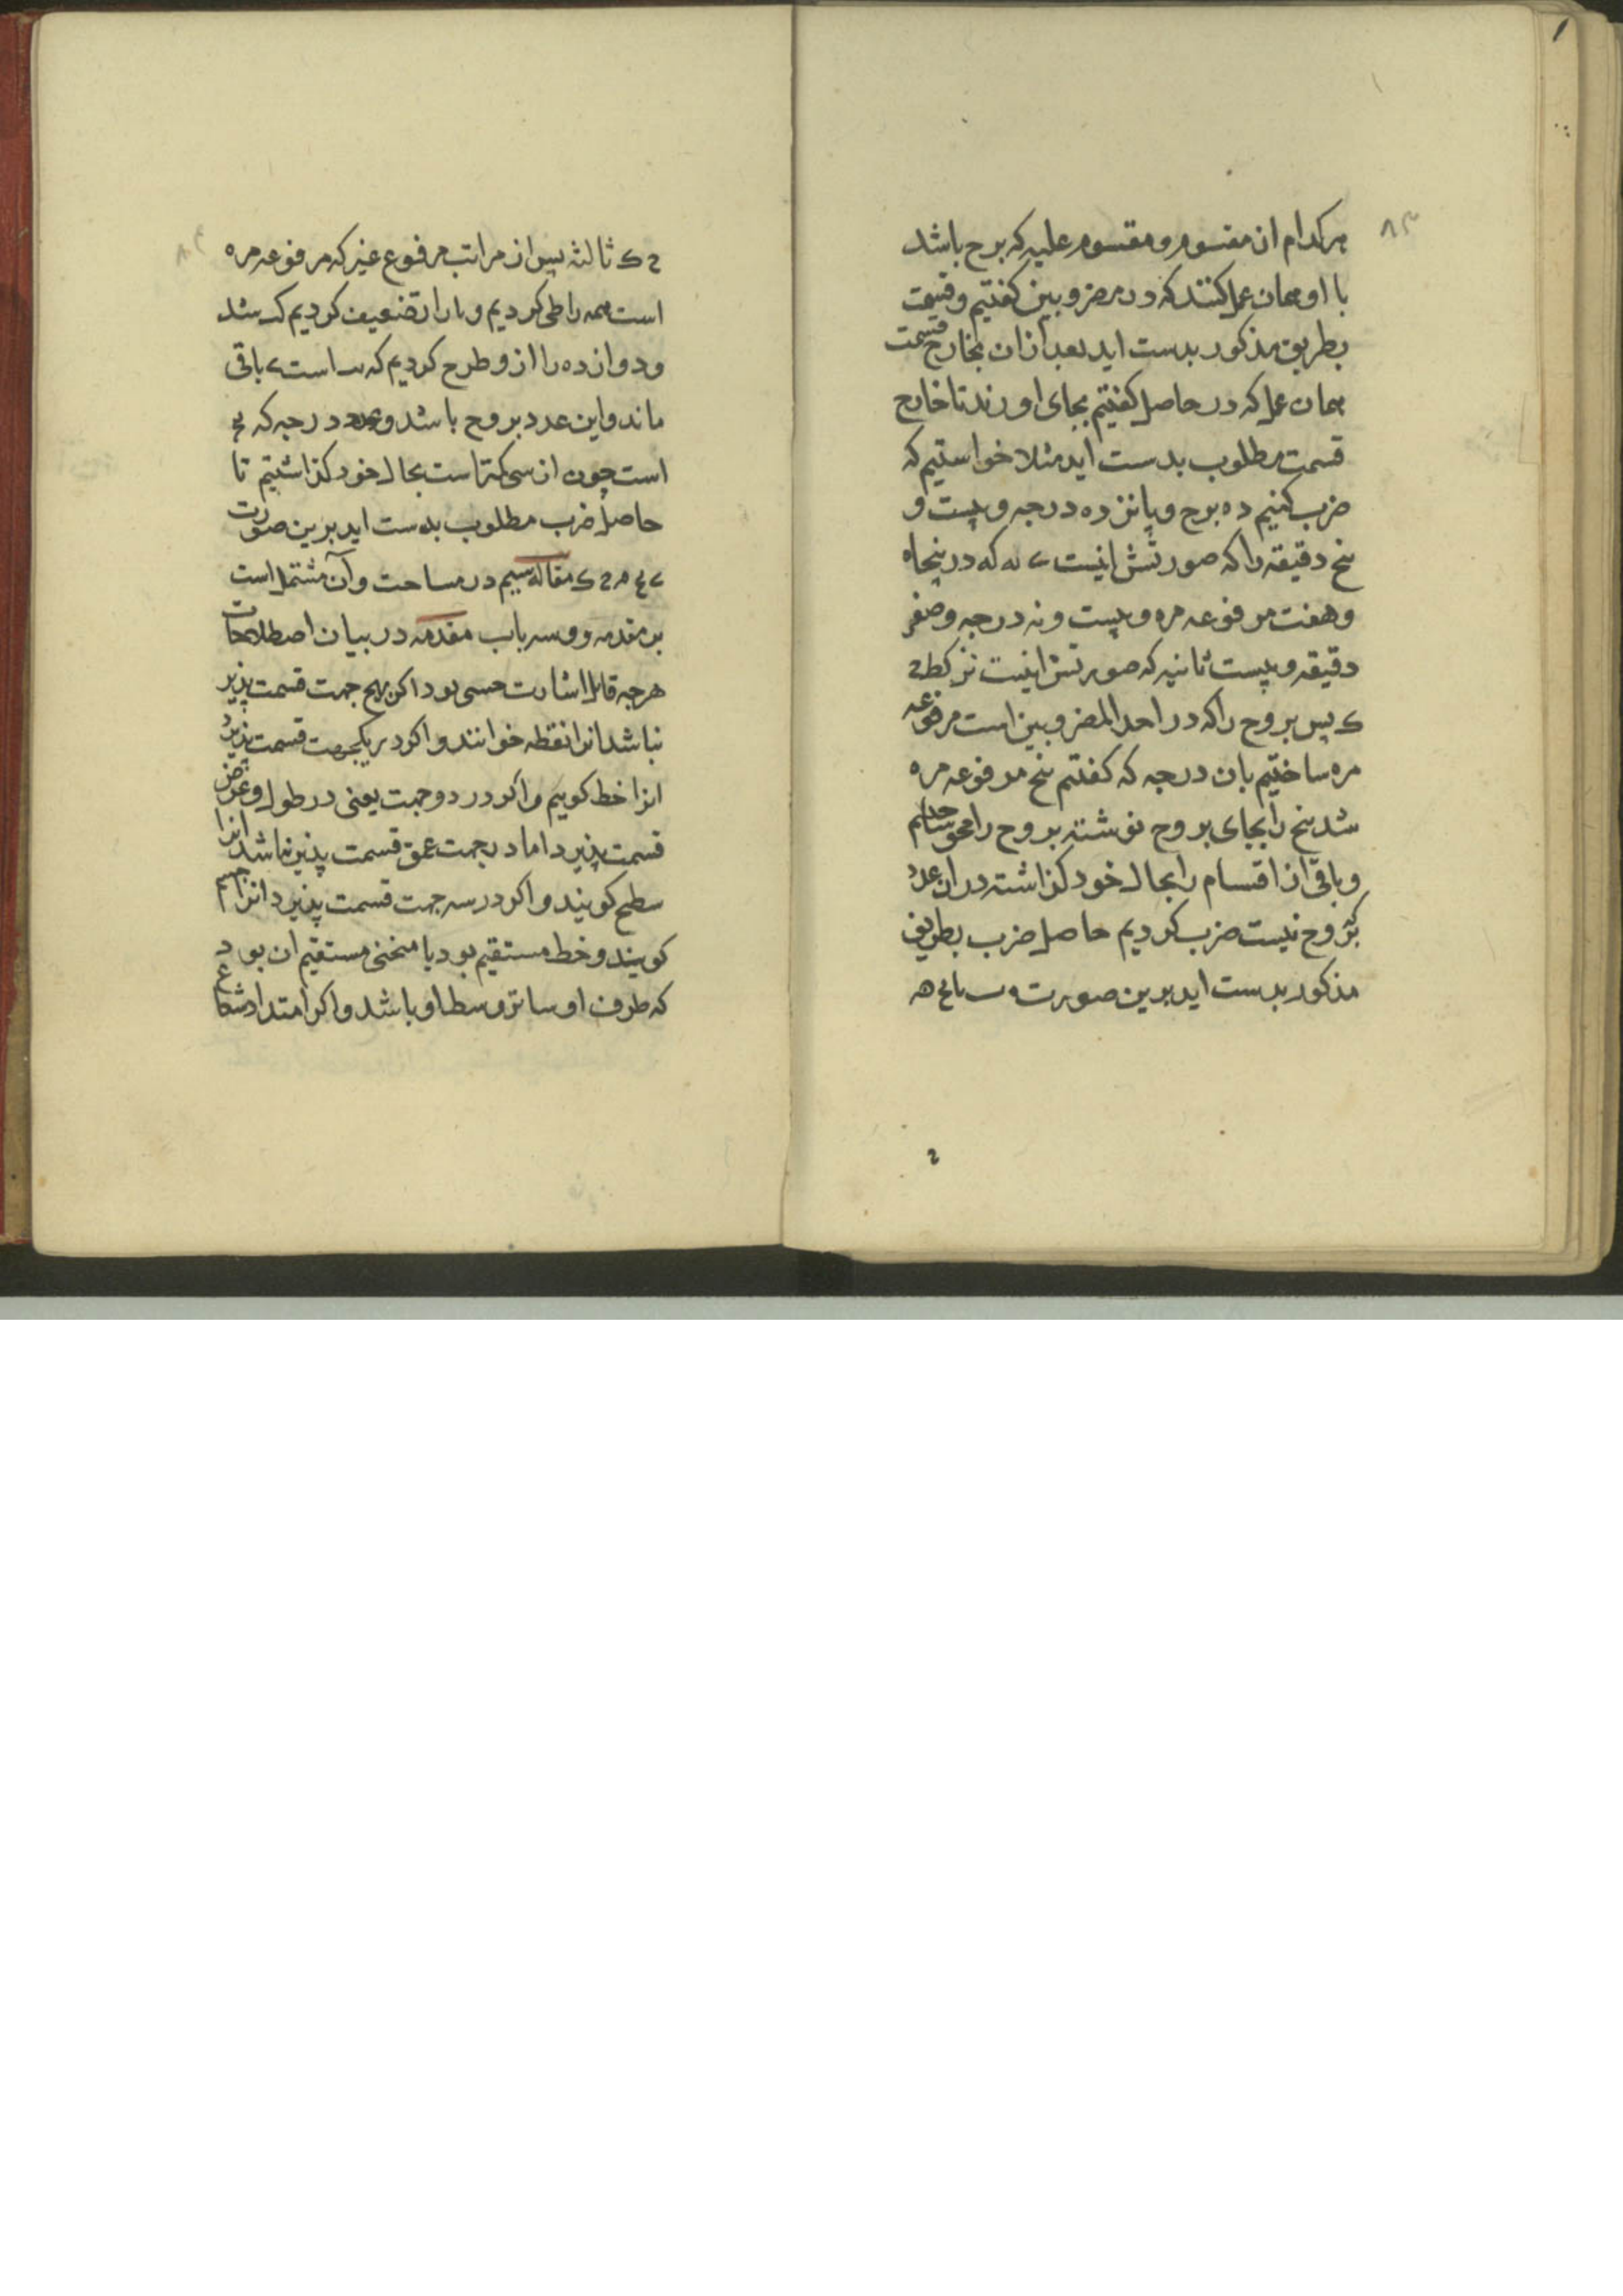 ۸۳
هرکدام از مقسوم و مقسوم علیه که برج باشد
با او همان عمل کنند که در مضروبین کفتیم و قسمت
بطریق مذکور بدست اید بعد از ان بخارج قسمت
همان عمل که در حاصل کفتیم بجای اورند تا خارج
قسمت مطلوب بدست اید مثلا خواستیم که
ضرب کنیم ده برج و پانزده درجه و بیست و
پنج دقیقه را که صورتش اینست ی یه که در پنجاه
و هفت مرفوعه مره و بیست و نه درجه و صفر
دقیقه و بیست ثانیه که صورتش اینست نز کط
ک پس بروج را که در احد المضروبین است مرفوعه
مره ساختیم بان درجه که کفتم پنج مرفوعه مره
شد پنج را بجای بروج نوشته بروج را محو ساختیم
و باقی از اقسام را بحال خود کذاشته در ان عدد
که بروج نیست ضرب کردیم حاصل ضرب بطریق
مذکور بدست اید برین صورت
۸۴
ک ثالثه پس از مراتب مرفوع غیر که مرفوعه مره
است همه را طی کردیم و را تضعیف کردیم کب شد
و دوازده را از و طرح کردیم که یب است ی باقی
ماند و این عدد بروج باشد و عدد درجه که
است چون از سی کمتر است بحال خود کذاشتیم تا
حاصل ضرب مطلوب بدست اید برین صورت
مقاله سیم در مساحت و آن مشتمل است
بر مقدمه و سه باب مقدمه در بیان اصطلاحات
هرچه قابل اشارت حسی بود اکر بهیچ جهت قسمت پذیر
نباشد انرا نقطه خوانند و اکر در یکجهت قسمت پذیرد
انرا خط کوییم و اکر در دو جهت یعنی در طول و عرض
قسمت پذیرد اما در جهت عمق قسمت پذیر نباشد انرا
سطح کویند و اکر در سه جهت قسمت پذیرد انرا جسم
کویند و خط مستقیم بود یا منحنی مستقیم ان بود
که طرف او ساتر وسط او باشد و اکر امتداد شعاع